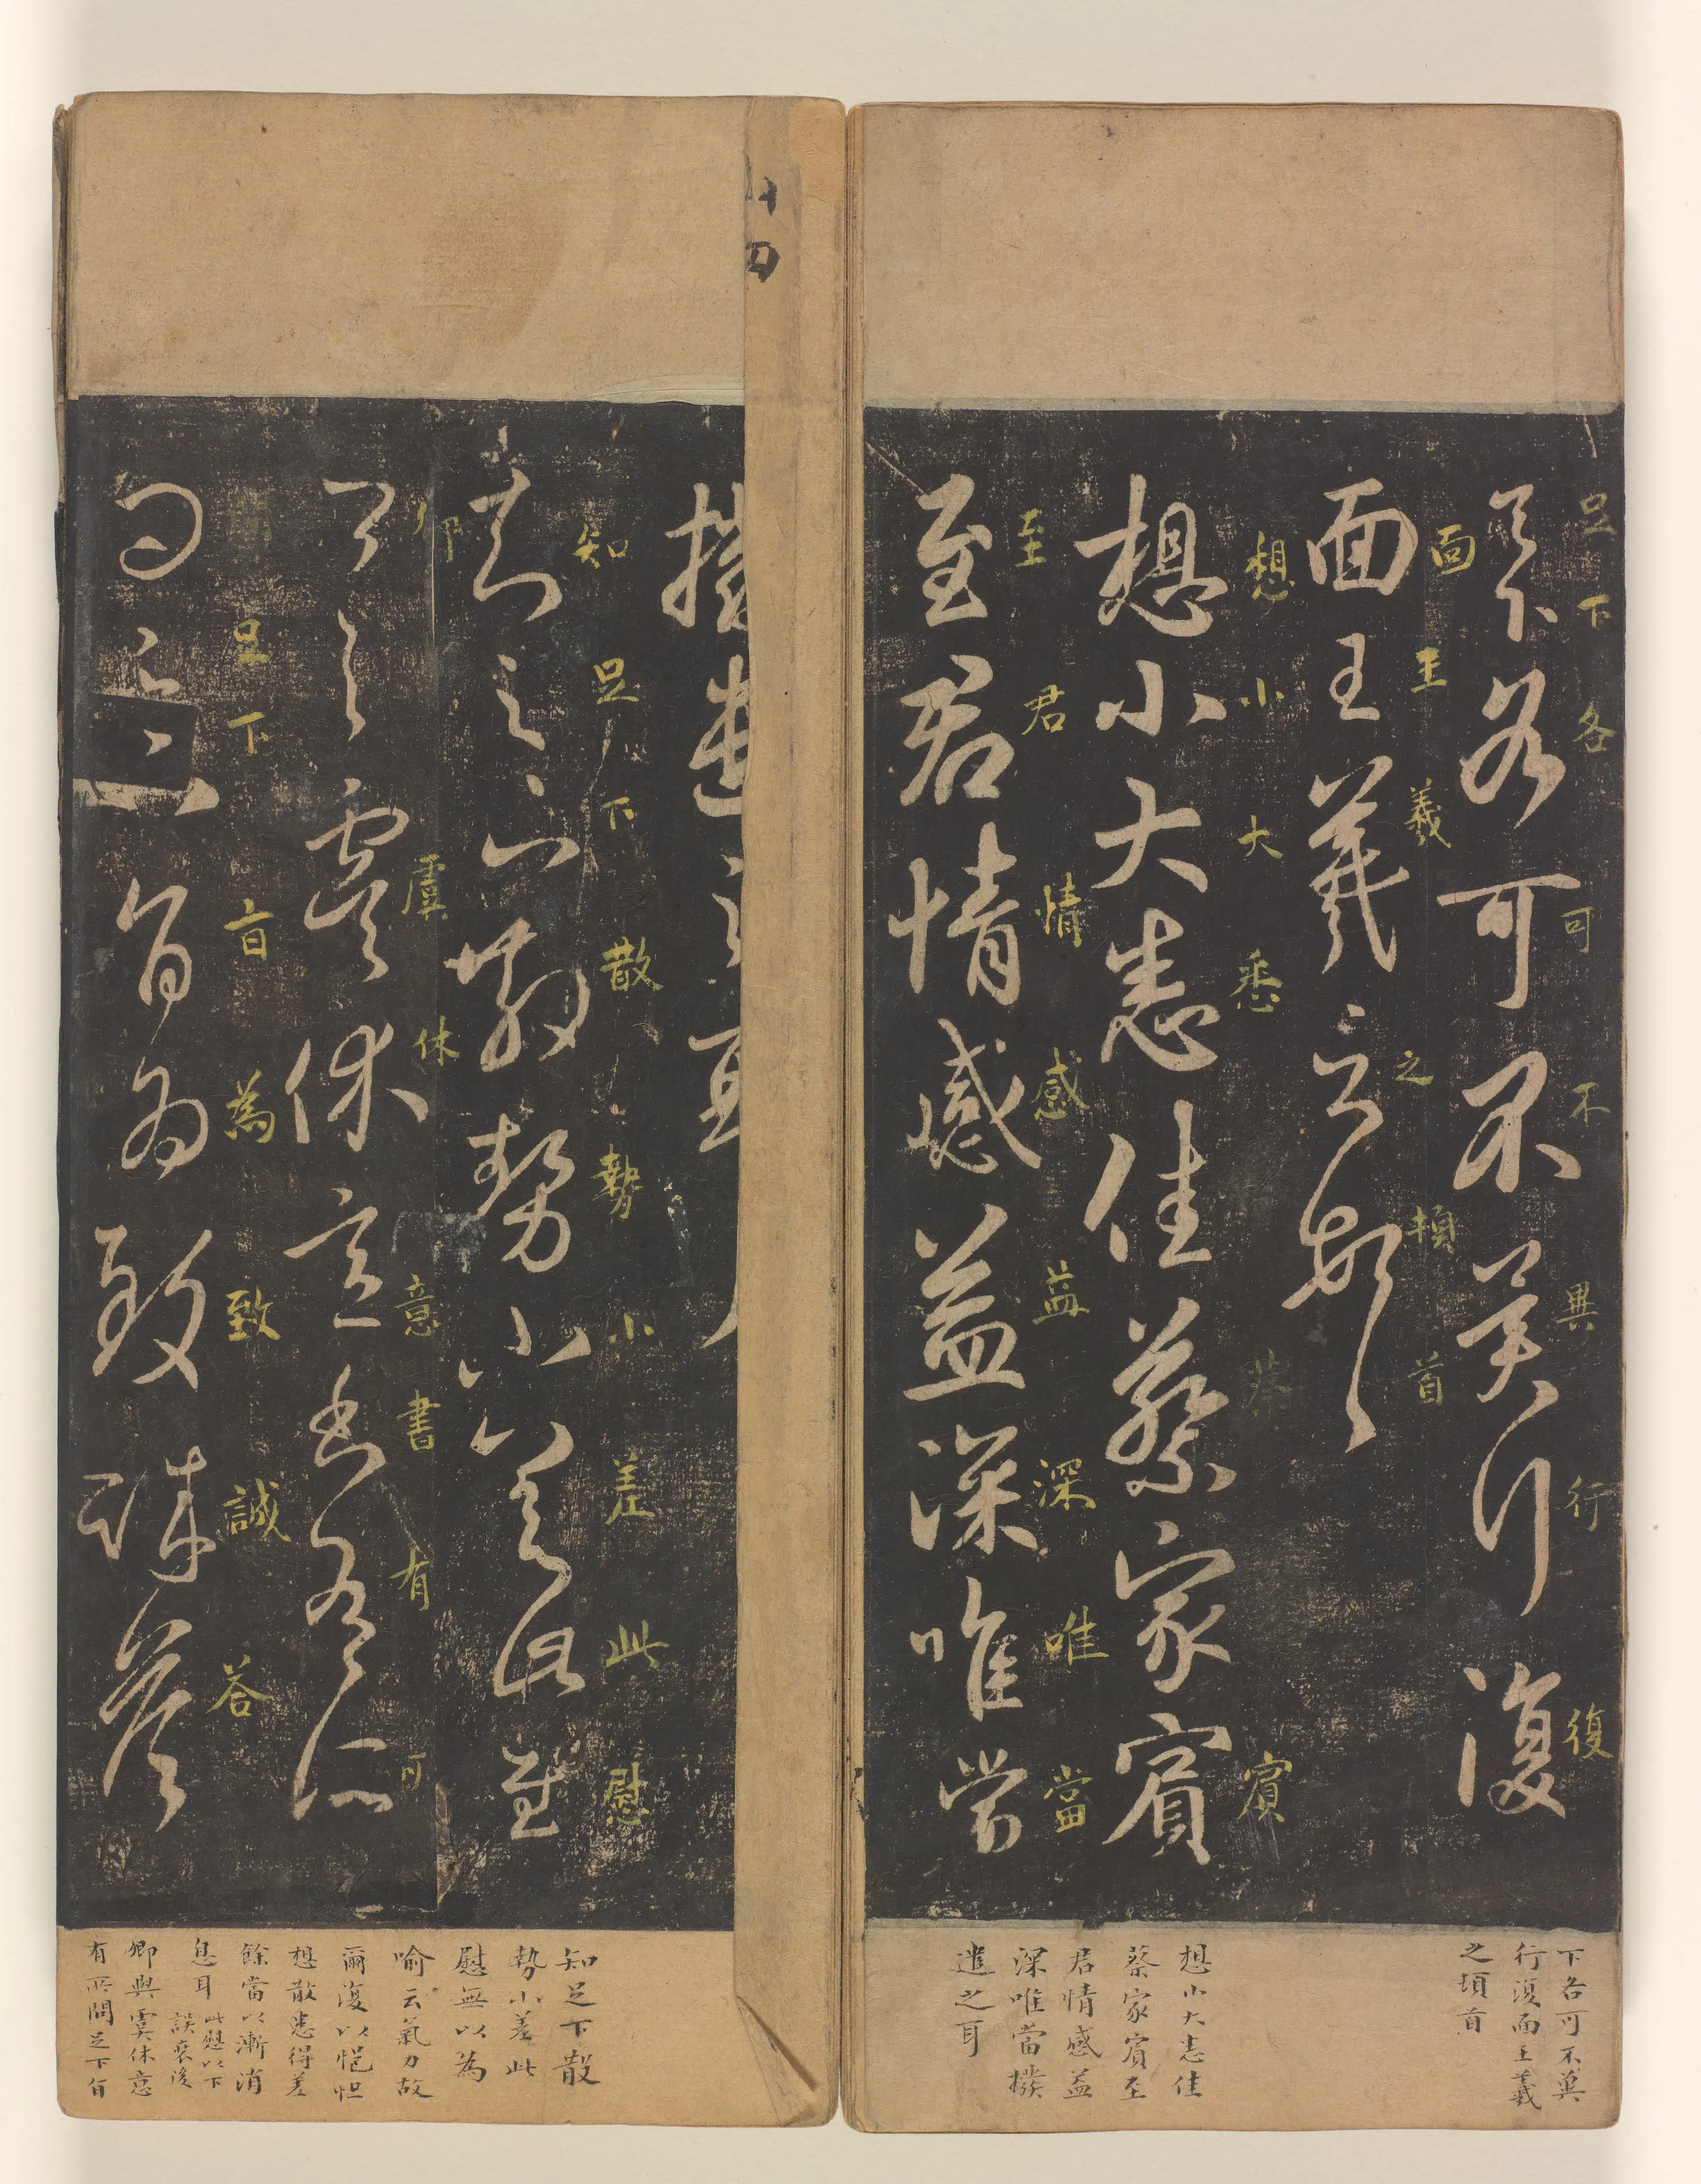 足下各可不異行復
面王羲之頓首
想小大悉佳蔡家賓
至君情感益深唯當
知足下散勢小差此慰
卿與虞休意書有所
問足下旨為致誠答
足下各可不異行復
面王羲之頓首
想小大悉大蔡賓
至君情感益深唯當
知足下散勢小差此慰
卿虞休意書有可
足下旨為致誠答
下各可不異
行復面王羲
之頓首
想小大悉佳
蔡家賓至
君情感益
深唯當撥
遣之耳
知足下散
勢小差此
慰無以為
喻云氣力故
爾復以悒怛
想散患得差
餘當以漸消
息耳
此慰以下
誤裹後
卿與虞休意
有所問足下旨